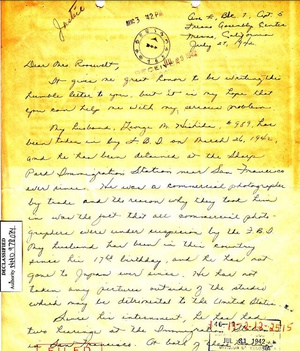 Justice
Fresno Assembly Center
Fresno, California
July 27, 1942
Dear Mrs Roosevelt,
It gives me great honor to be writing this
humble letter to you, but it is my hope that
you can help me with my serious problem.
My husband, George M. Nishida, has
been taken in by F.B.I. on March 26, 1942,
and he has been detained at the Sharp
Park Immigration Station near San Francisco
ever since. He was a commercial photographer
by trade and the reason why they took him
in was the fact that all commercial photo-
graphers were under suspicion by the F.B.I.
My husband has been in this country
since his 17th birthday, and he has not
gone to Japan ever since. He has not
taken any pictures outside of the studio
which may be detrimental to the United States.
Since his internment, he has had
two hearings at the Immigration
in San Francisco. At both of these
JUL 31 1942
FILED
DECLASSIFIED
Authority